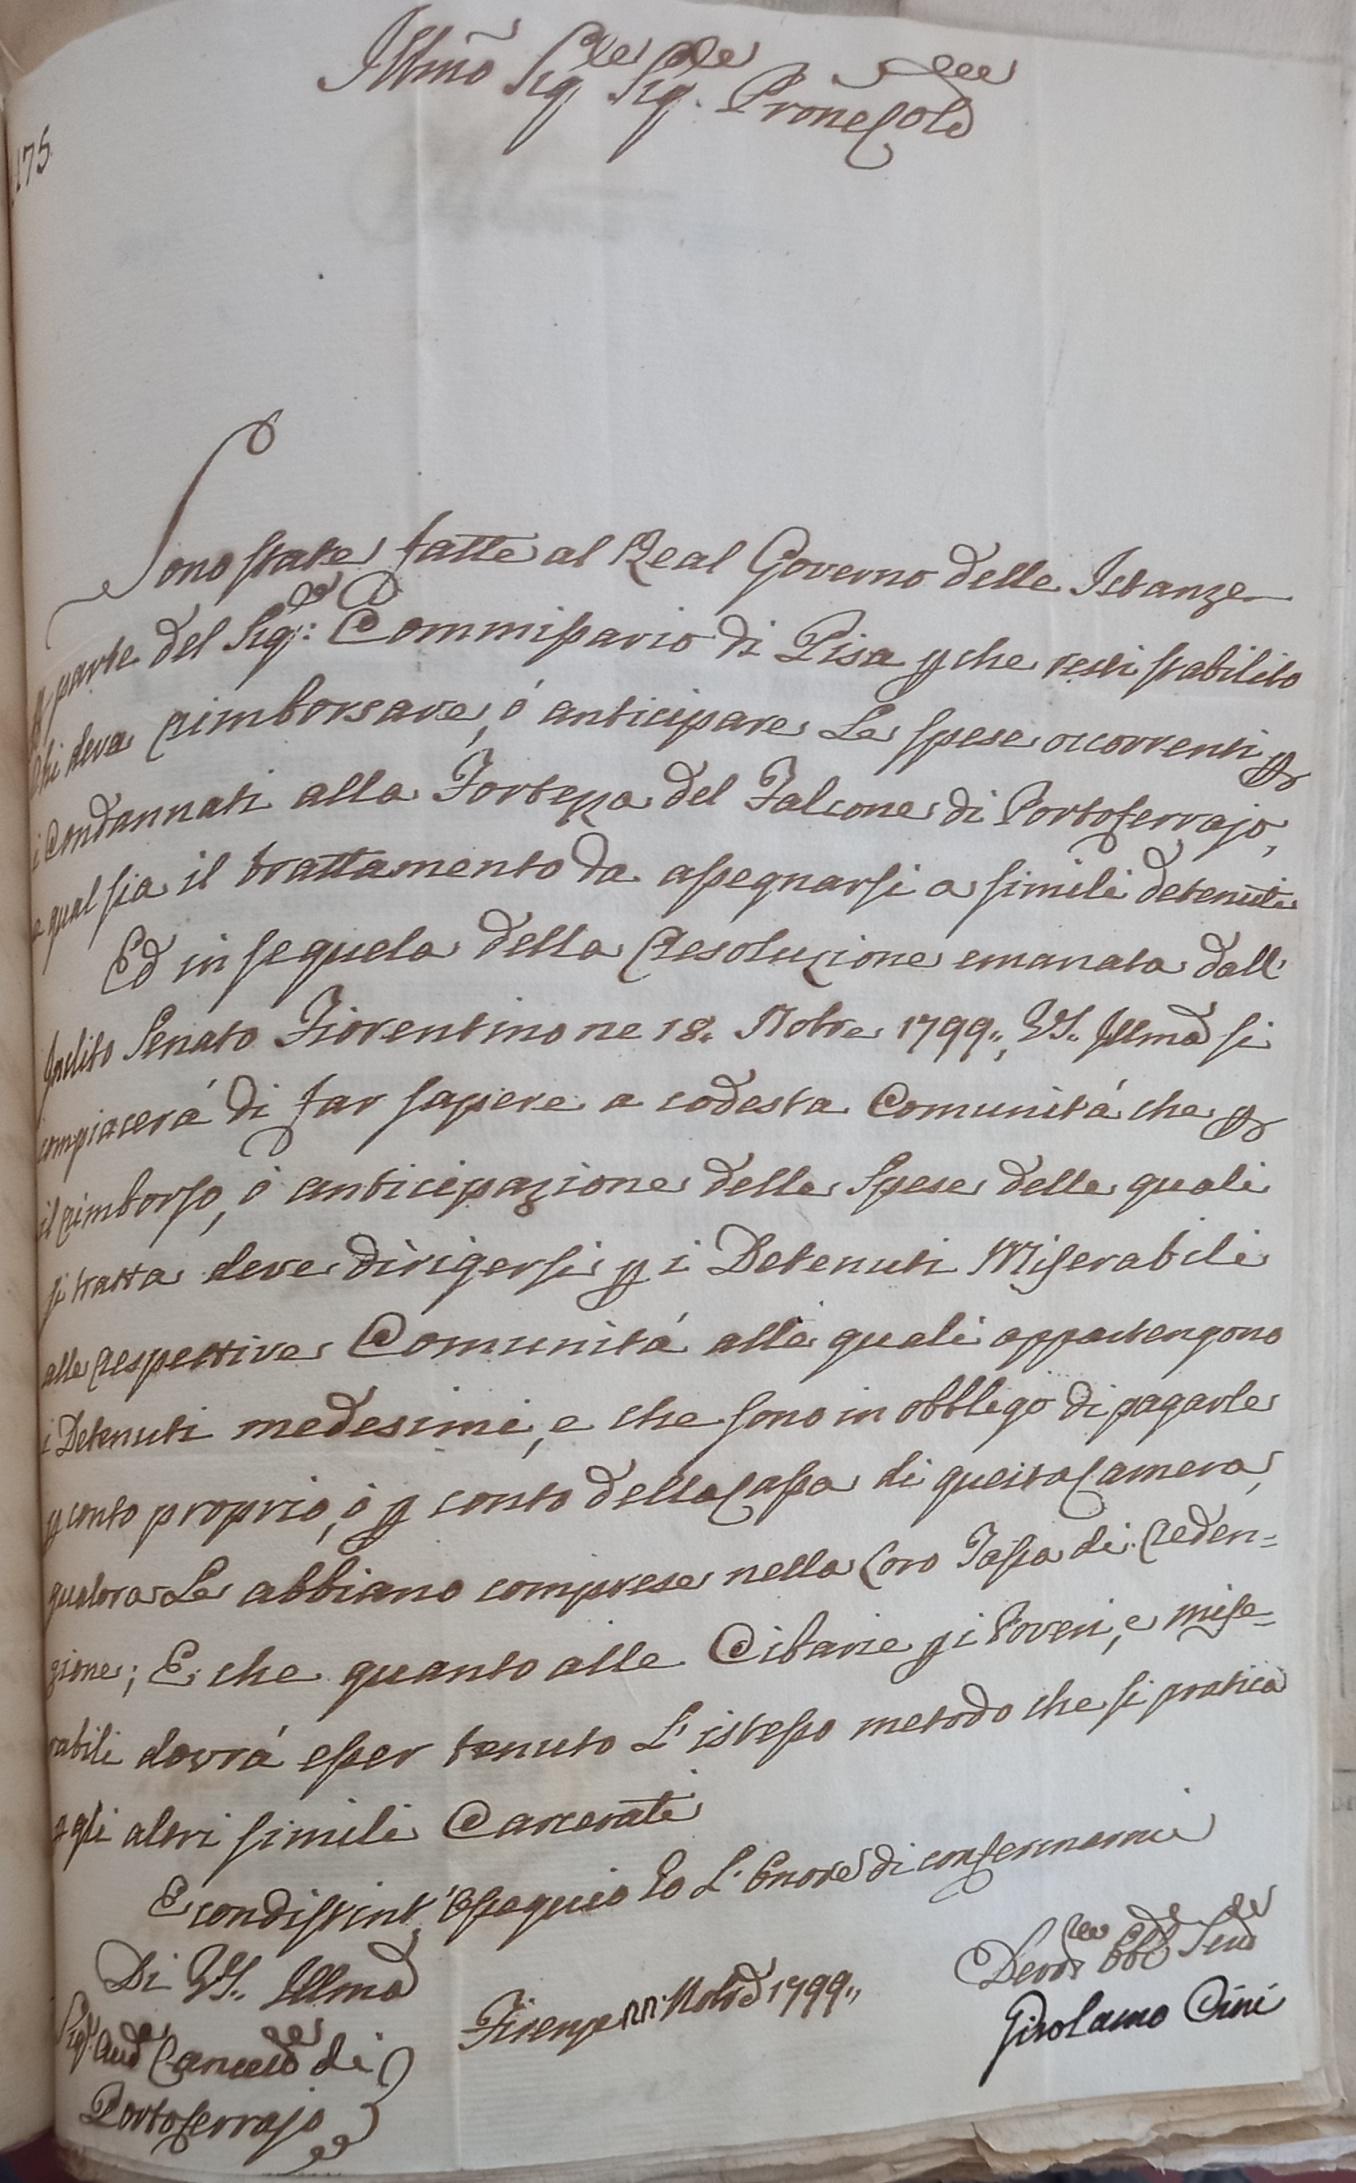 Illmo Sig.re Sig.re Prone Colo
175
Sono state fatte al Real Governo delle Istanze
per parte del Sig.re Commissario di Pisa p che resti stabilito
chi deva rimborsare, ó anticipare Le spese occorrenti p
i Condannati alla Fortezza del Falcone di Portoferrajo,
e qual sia il trattamento da assegnarsi a simili detenuti
Ed in sequela della Resoluzione emanata dall'
Inclito Senato Fiorentino ne 18. Nobre 1799., VS. Illma si
compiacerá di far sapere a codesta Comunitá che p
il rimborso, ó anticipazione delle Spese delle quali
si tratta deve dirigersi p i Detenuti Miserabili
alle respettive Comunitá alle quali appartengono
i Detenuti medesimi, e che sono in obbligo di pagarle
p conto proprio, ó p conto della Cassa di questa Camera,
qualora Le abbiano comprese nella Loro Tassa di Reden=
zione; E che quanto alle Cibarie p i Poveri, e mise=
rabili dovrá esser tenuto L'istesso metodo che si pratica
agli altri simili Carcerati
E con distint'Ossequio ho L'Onore di confermarmi
Di VS. Illma
Firenze 22. Nobre 1799.,
Devmo Obbmo Serv
Girolamo Cini
Sig. Aud Cancel di
Portoferrajo